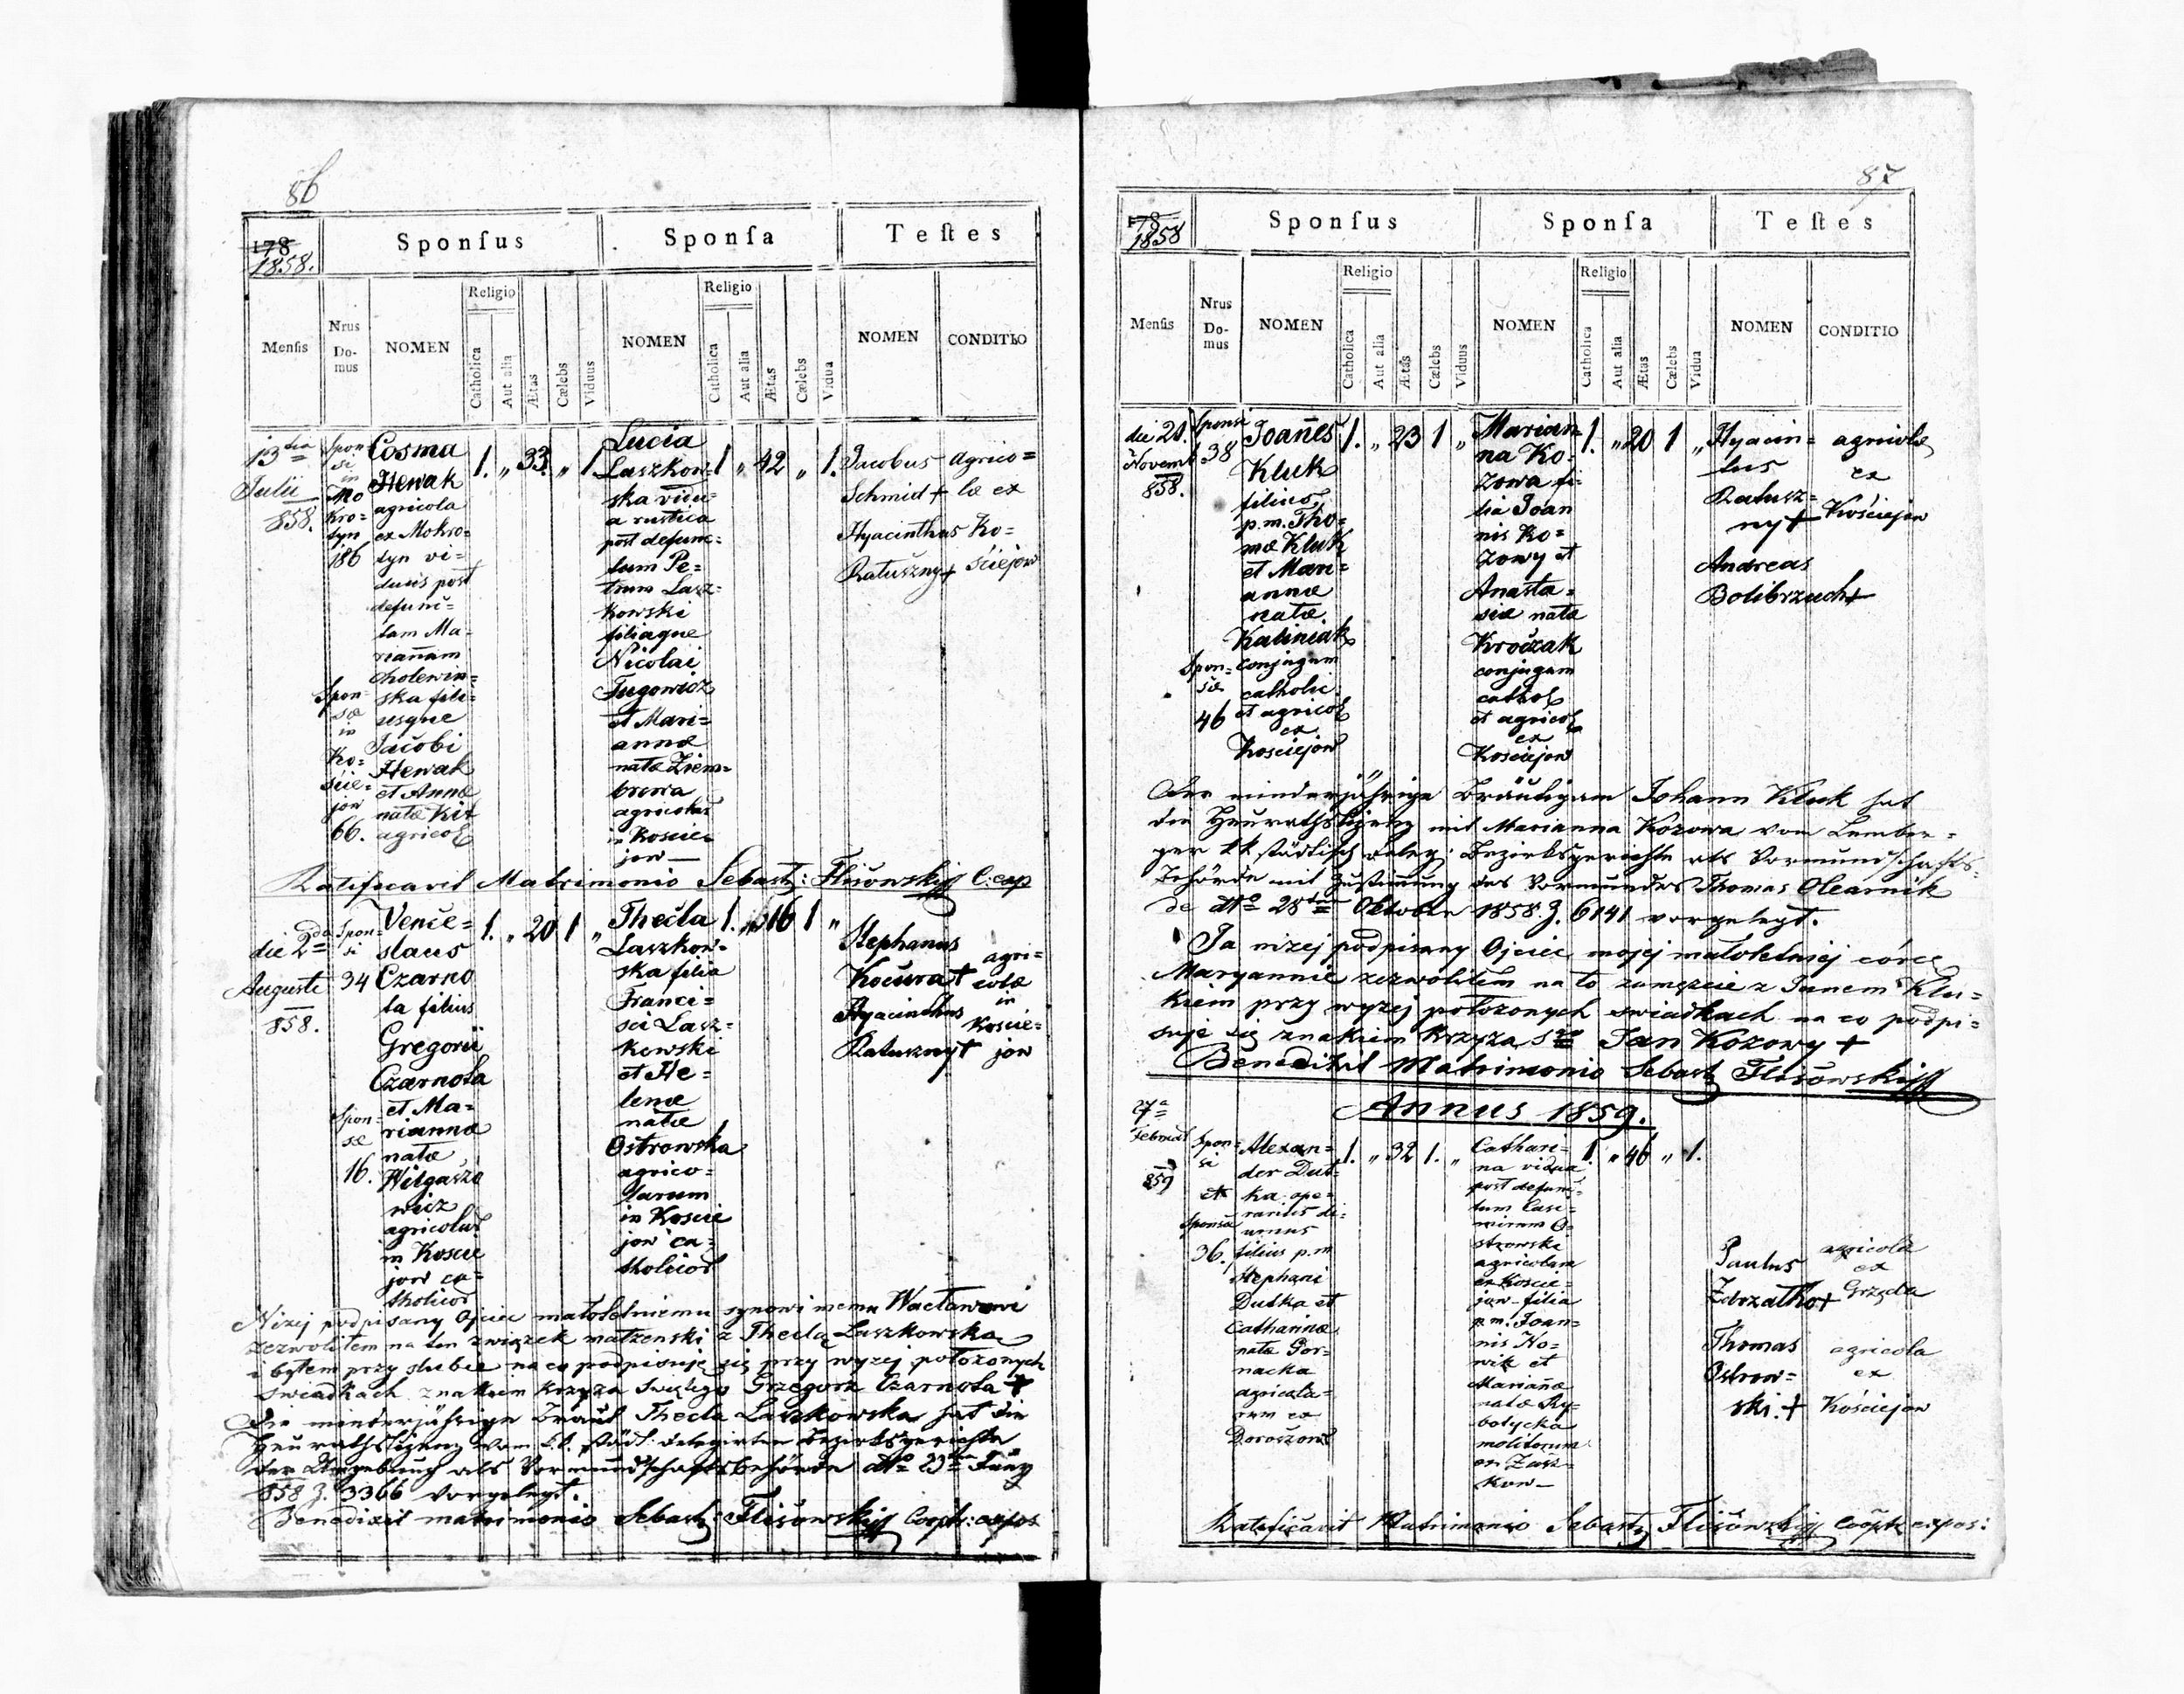 86
178
1858.
Sponſus
Sponſa
Teſtes
Menſis
Nrus Do-mus
NOMEN
Religio
Catholica
Aut alia
Ætas
Cælebs
Viduus
NOMEN
Religio
Catholica
Aut alia
Ætas
Cælebs
Vidua
NOMEN
CONDITIO
13tia
Julii
858.
Spon=
si
in
Mo
kro=
tyn
186
Spon=
sæ
in
Ko=
ście=
jow
66.
Cosma
Hewak
agricola
ex Mokro=
tyn vi=
duus post
defunc=
tam Ma=
riannam
Cholewin=
ska fili=
usque
Jacobi
Hewak
et Annæ
natæ Kit
agricol
1. „ 33. „ 1
Lucia
Laszkow=
ska vidu=
a rustica
post defunc=
tum Pe=
trum Lasz=
kowski
filiaque
Nicolai
Tugowicz
et Mari=
annæ
natæ Ziem=
browa
agricolar
in Koscie=
jow —
1 „ 42 „ 1.
Jacobus
Schmid +
Hyacinthus
Ratuszny +
agrico=
læ ex
Ko=
ściejow
Ratificavit Matrimonio Sebast: Flisowski C: exp
die 2da
Augusti
858.
Spon=
si
34
Spon=
sæ
16.
Vence=
slaus
Czarno
ta filius
Gregorii
Czarnota
et Ma=
riannæ
natæ
Witgaszo
wicz
agricolar
in Koscie
jow ca=
tholicor
1. „ 20 1 „
Thecla
Laszkow=
ska filia
Franci=
sci Lasz=
kowski
et He=
lenæ
natæ
Ostrowska
agrico=
larum
in Koscie
jow ca=
tholicor
1. „ 16 1 „
Stephanus
Kocura +
Hyacinthus
Ratuszny +
agri=
colæ
in
Koscie=
jow
Niżej podpisany Ojciec małoletniemu synowi memu Wacławowi
zezwolitem na ten związek małzenski z Theclą Laszkowską
i byłem przy slubie na co podpisuję się przy wyzej potozonych
swiadkach znakiem krzyza swiętego Grzegorz Czarnota +
Die minderjährige Braut Thecla Laszkowska hat die
Heurathslizenz vom k.k. städt: delegirten Bezirksgerichte
der Umgebung als Vormundschaftsbehörde dto 23ten Juny
858 Z. 3366 vorgelegt.
Benedixit matrimonio Sebast: Flisowski Coop: expos
87
178
1858
Sponſus
Sponſa
Teſtes
Menſis
Nrus Do-mus
NOMEN
Religio
Catholica
Aut alia
Ætas
Cælebs
Viduus
NOMEN
Religio
Catholica
Aut alia
Ætas
Cælebs
Vidua
NOMEN
CONDITIO
die 21.
Novemb
858.
Sponsi
38
Spon=
sæ
46
Joanes
Kluk
filius
p.m. Tho=
mæ Kluk
et Mari=
annæ
natæ
Kaliniak
conjugum
catholic.
et agricol
ex
Kosciejow
1. „ 23 1 „
Marian=
na Ko=
zowa fi=
lia Joan
nis Ko=
zowy et
Anasta=
siæ natæ
Kroczak
conjugum
cathol
et agricol
ex
Kosciejow
1. „ 20 1 „
Hyacin=
tus
Ratusz=
ny +
Andreas
Bolibrzuch +
agricolæ
ex
Kościejow
Der minderjährige Bräutigam Johann Kluk hat
die Heurathslizenz mit Marianna Kozowa vom Lember=
ger kk städtisch deleg: Bezirksgerichte als Vormundschafts=
Behörde mit Zustimmung des Vormundes Thomas Olearnik
de dto 28ten Oktober 1858 Z. 6141 vorgelegt.
Ja nizej podpisany Ojciec mojej małoletniej córce
Maryannie zezwolitem na to zamęzcie z Janem Klu=
kiem przy wyzej potozonych swiadkach na co podpi=
suje się znakiem krzyza Sgo Jan Kozowy +
Benedixit Matrimonio Sebast Flisowski
Annus 1859.
7a
Februar
859
Spon=
si
et
Sponsæ
36.
Alexan=
der Dut=
ka ope=
rarius di=
urnus
filius p.m
Stephani
Dutka et
Catharinæ
natæ Gor=
nacka
agricola=
rum ex
Doroszow
1. „ 32 1. „
Cathari=
na vidua
post defunc=
tum Casi=
mirum O=
strowski
agricolam
ex Koscie=
jow filia
p.m. Joan=
nis No=
wik et
Mariañæ
natæ Ry=
botycka
molitorum
ex Zasz=
kow —
1 „ 46 „ 1.
Paulus
Zdrzatko +
Thomas
Ostrow=
ski. +
agricola
ex
Grzęda
agricola
ex
Kościejow
Ratificavit Matrimonio Sebast Flisowski Coop expos: